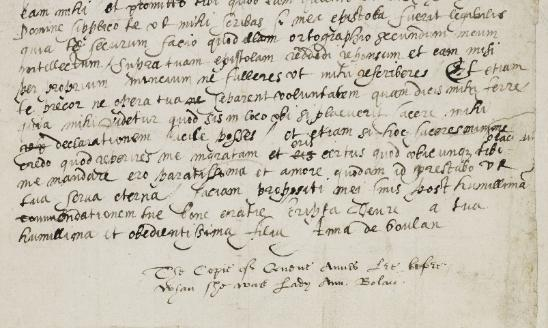 eam mihi et promitto tibi quod eam
Domine supplico te ut mihi scribas si mea epistola fuerit legibilis
quia te securum facio quod illam ortographio secundum meum
intellectum supra tuam epistolam reddidi responsum et eam misi
per proprium nuncium ne falleres ut mihi rescriberes Et etiam
te precor ne opera tua separent voluntatem quam dicis mihi ferre
quia mihi videtur quod sis in loco ubi si placuerit facere mihi
declarationem facile posses et etiam si hoc faceres minime
credo quod reperires me ingratam et certus quod ubicunque tibi
me mandare ero paratissima et amore quodam id prestabo
tua serva eterna faciam propositi mei post humillimam
commendationem tue bone gratie scripta a tua
humillima et obedientissima filia Anna de boulan
The Copie of Quene Annes Lre before
whan she was Lady Ann. Bolan